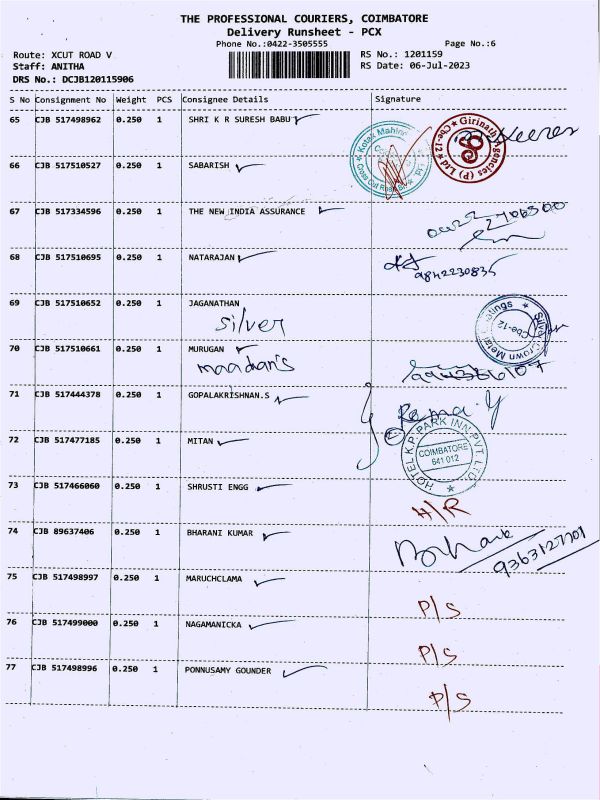 THE PROFESSIONAL COURIERS, COIMBATORE
Delivery Runsheet - PCX
Phone No.:0422-3505555 Page No.:6
Route: XCUT ROAD V RS No.: 1201159
Staff: ANITHA RS Date: 06-Jul-2023
DRS No.: DCJB120115906
S No Consignment No Weight PCS Consignee Details Signature
65 CJB 517498962 0.250 1 SHRI K R SURESH BABU
Girinath Agencies (P) Ltd Cbe-12
66 CJB 517510527 0.250 1 SABARISH
67 CJB 517334596 0.250 1 THE NEW INDIA ASSURANCE
68 CJB 517510695 0.250 1 NATARAJAN 9842230835
69 CJB 517510652 0.250 1 JAGANATHAN
silver
Cbe-12
70 CJB 517510661 0.250 1 MURUGAN
maadran's
71 CJB 517444378 0.250 1 GOPALAKRISHNAN.S Rama.y
72 CJB 517477185 0.250 1 MITAN
HOTEL K.P. PARK INN PVT. LTD.
COIMBATORE
641 012
73 CJB 517466060 0.250 1 SHRUSTI ENGG H/R
74 CJB 89637406 0.250 1 BHARANI KUMAR
75 CJB 517498997 0.250 1 MARUCHCLAMA P/S
76 CJB 517499000 0.250 1 NAGAMANICKA P/S
77 CJB 517498996 0.250 1 PONNUSAMY GOUNDER P/S